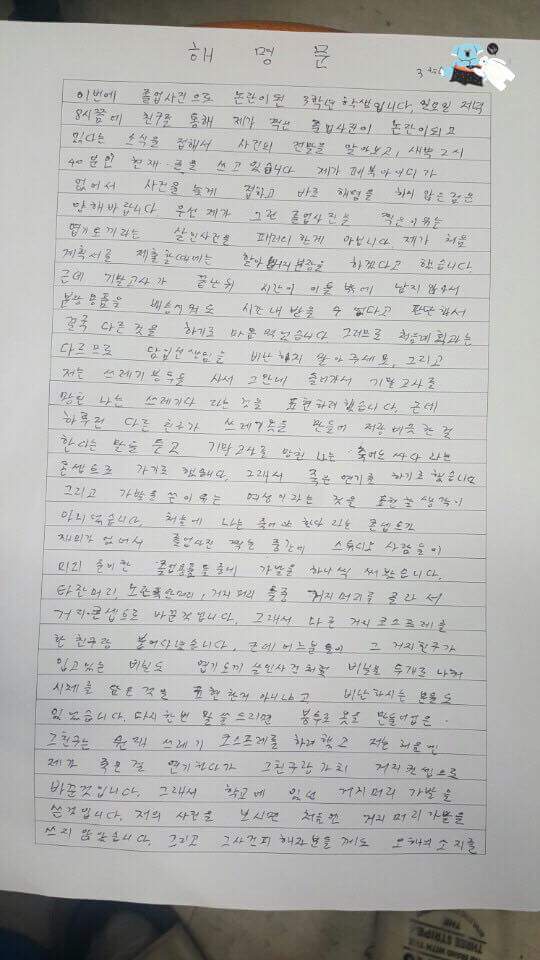 해 명 문
3학년
이번에 졸업사진으로 논란이 된 3학년 학생입니다. 일요일 저녁
8시쯤에 친구를 통해 제가 찍은 졸업사진이 논란이 되고
있다는 소식을 접해서 사건의 전말을 알아보고, 새벽 2시
40분인 현재 글을 쓰고 있습니다 제가 페북아이디가
없어서 사건을 늦게 접하고 바로 해명을 하지 않은 점은
양해바랍니다 우선 제가 그런 졸업사진을 찍은 이유는
엽기토끼라는 살인사건을 패러디 한게 아닙니다. 제가 처음
계획서를 제출할때에는 할아버지분장을 하겠다고 했습니다.
근데 기말고사가 끝난뒤 시간이 이틀 밖에 남지 않아서
분장용품을 배송시켜도 시간내 받을 수 없다고 판단해서
결국 다른것을 하기로 마음먹었습니다 그러므로 처음계획과는
다르므로 담임선생님을 비난하지 말아주세요, 그리고
저는 쓰레기봉투를 사서 그안에 들어가서 기말고사를
망친 나는 쓰레기다 라는 것을 표현하려했습니다. 근데
하루전 다른 친구가 쓰레기옷을 만들어 저랑 비슷한 걸
한다는 말을 듣고 기말고사를 망친 나는 죽어도 싸다 라는
콘셉트로 가기로 했습니다. 그래서 죽은 연기를 하기로 했습니다
그리고 가발을 쓴 이유는 여성이라는 것을 표현할 생각이
아니었습니다. 처음에 나는 죽어야 한다 라는 콘셉트가
재미가 없어서 졸업사진 찍는 중간에 스튜디오 사람들이
미리 준비한 졸업용품들 중에 가발을 하나씩 써봤습니다.
타잔머리, 노란 머리, 거지머리 들중 거지머리를 골라서
거지 콘셉트로 바꾼것입니다. 그래서 다른 거지 코스프레를
한 친구랑 붙어다녔습니다. 근데 어느분들이 그 거지친구가
입고있는 비닐도 엽기토끼 살인사건처럼 비닐봉 두개로 나눠
시체를 담은 것을 표현한것 아니냐고 비난하시는 분들도
있었습니다. 다시한번 말씀드리면 봉투로 옷을 만들어입은
그친구는 원래 쓰레기 코스프레를 하려했고 저는 처음엔
제가 죽은걸 연기한다가 그친구랑 같이 거지컨셉으로
바꾼것입니다. 그래서 학교에 있던 거지머리 가발을
쓴것입니다. 저의 사진을 보시면 처음엔 거지머리가발을
쓰지 않았습니다. 그리고 그사건피해자분들께도 오해의 소지를